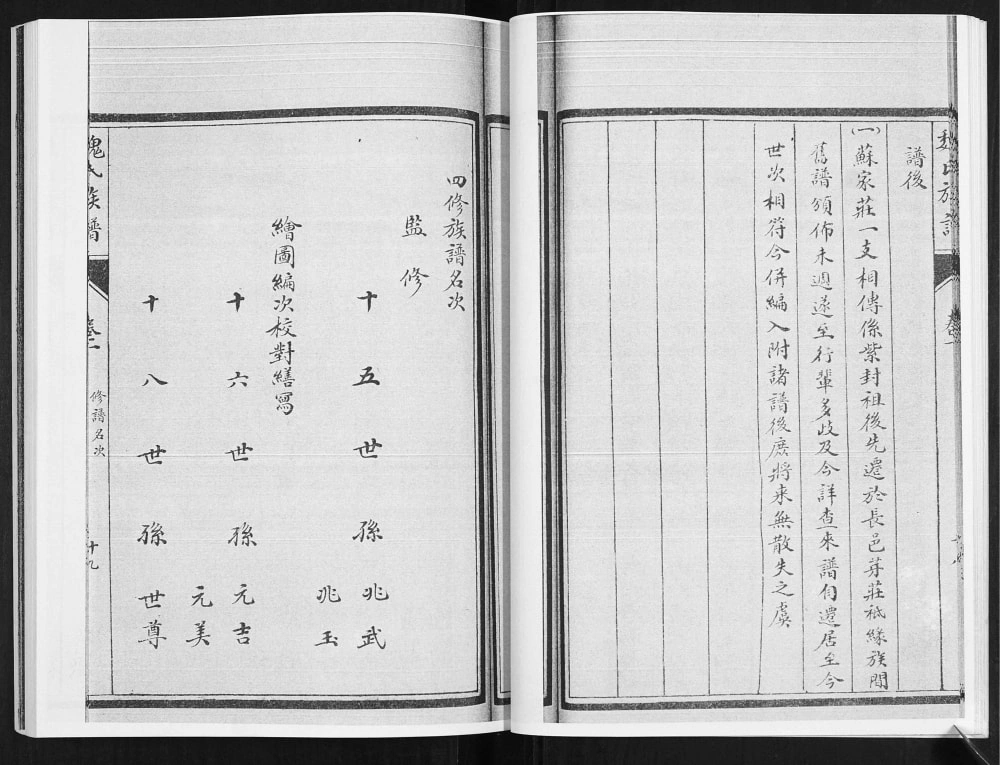 魏氏族譜
卷一
譜後
(一)蘇家莊一支相傳係紫封祖後先遷於長邑芽莊祗緣族間
舊譜頒佈未週遂至行輩多歧及今詳查來譜自遷居至今
世次相符今併編入附諸譜後庶將来無散失之虞
四修族譜名次
監修
十五世孫兆武
兆玉
繪圖編次校對繕寫
十六世孫元吉
元美
十八世孫世尊
魏氏族譜
卷一
修譜名次
十九